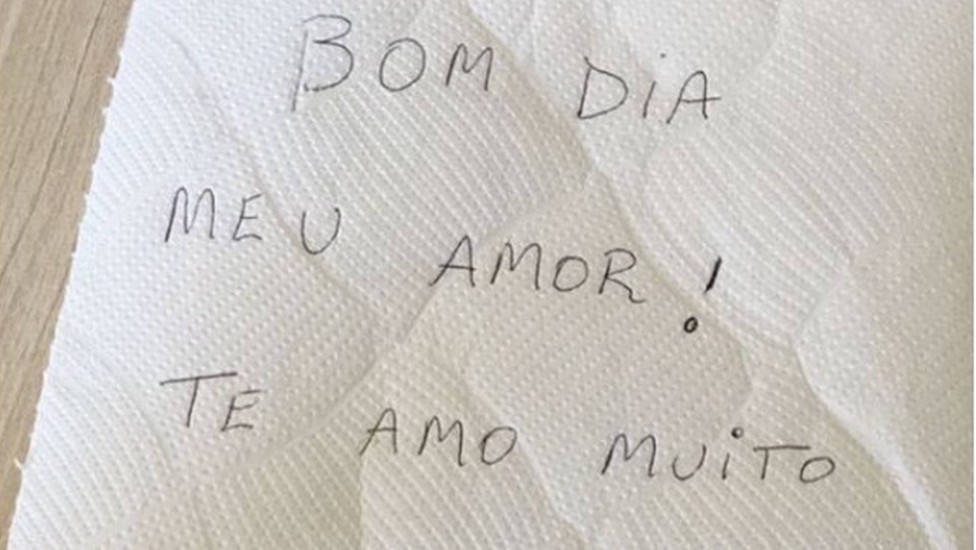 BOM DiA
MEU AMOR!
TE AMO MUiTO